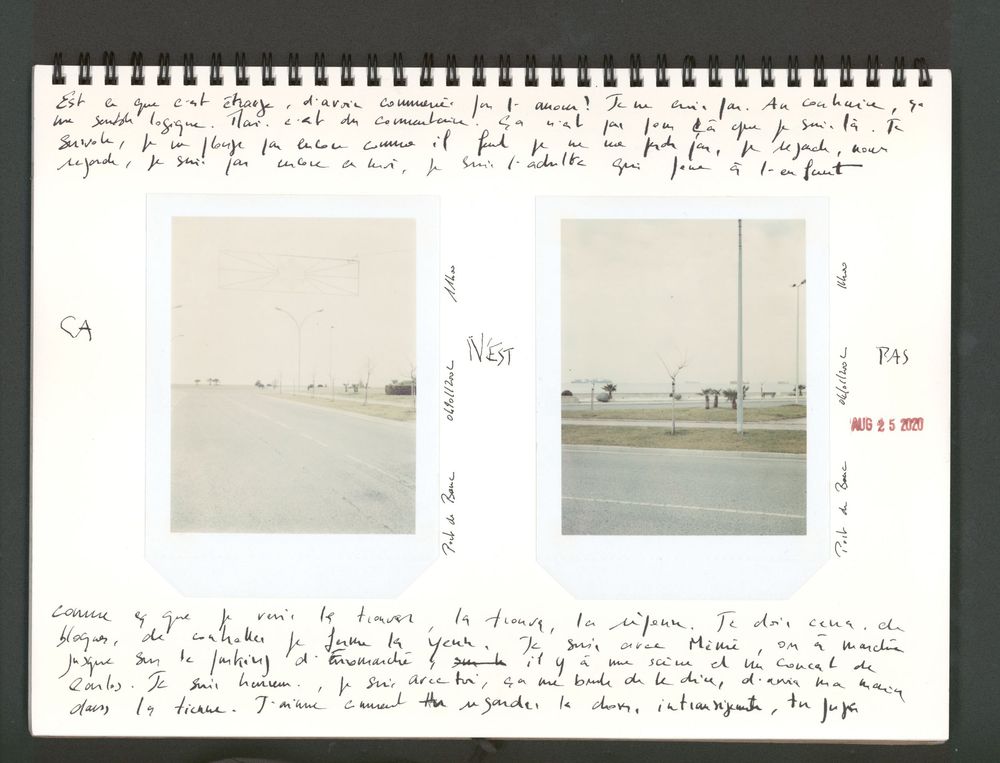 Est ce que c'est étrange, d'avoir commencé par l'amour? Je ne crois pas. Au contraire, ça
me semble logique. Mais c'est du commentaire. Ça n'est pas pour ça que je suis là. Je
survole, je ne plonge pas encore comme il faut je ne me perds pas, je regarde, nous
regarde, je suis pas encore en moi, je suis l'adulte qui joue à l'enfant
ÇA
N'EST
PAS
Port de Bouc 06/01/2002 11h00
Port de Bouc 06/01/2002
AUG 25 2020
comme ça que je vais la trouver, la trouver, la réponse. Je dois cesser de
bloquer, de contrôler je ferme les yeux. Je suis avec Mimie, on a marché
jusque sur le parking d'Euromarché, il y a une scène et un concert de
Carlos. Je suis heureux, je suis avec toi, ça me brûle de le dire, d'avoir ma main
dans la tienne. J'aime comment tu regardes les choses, intransigeante, tu juges